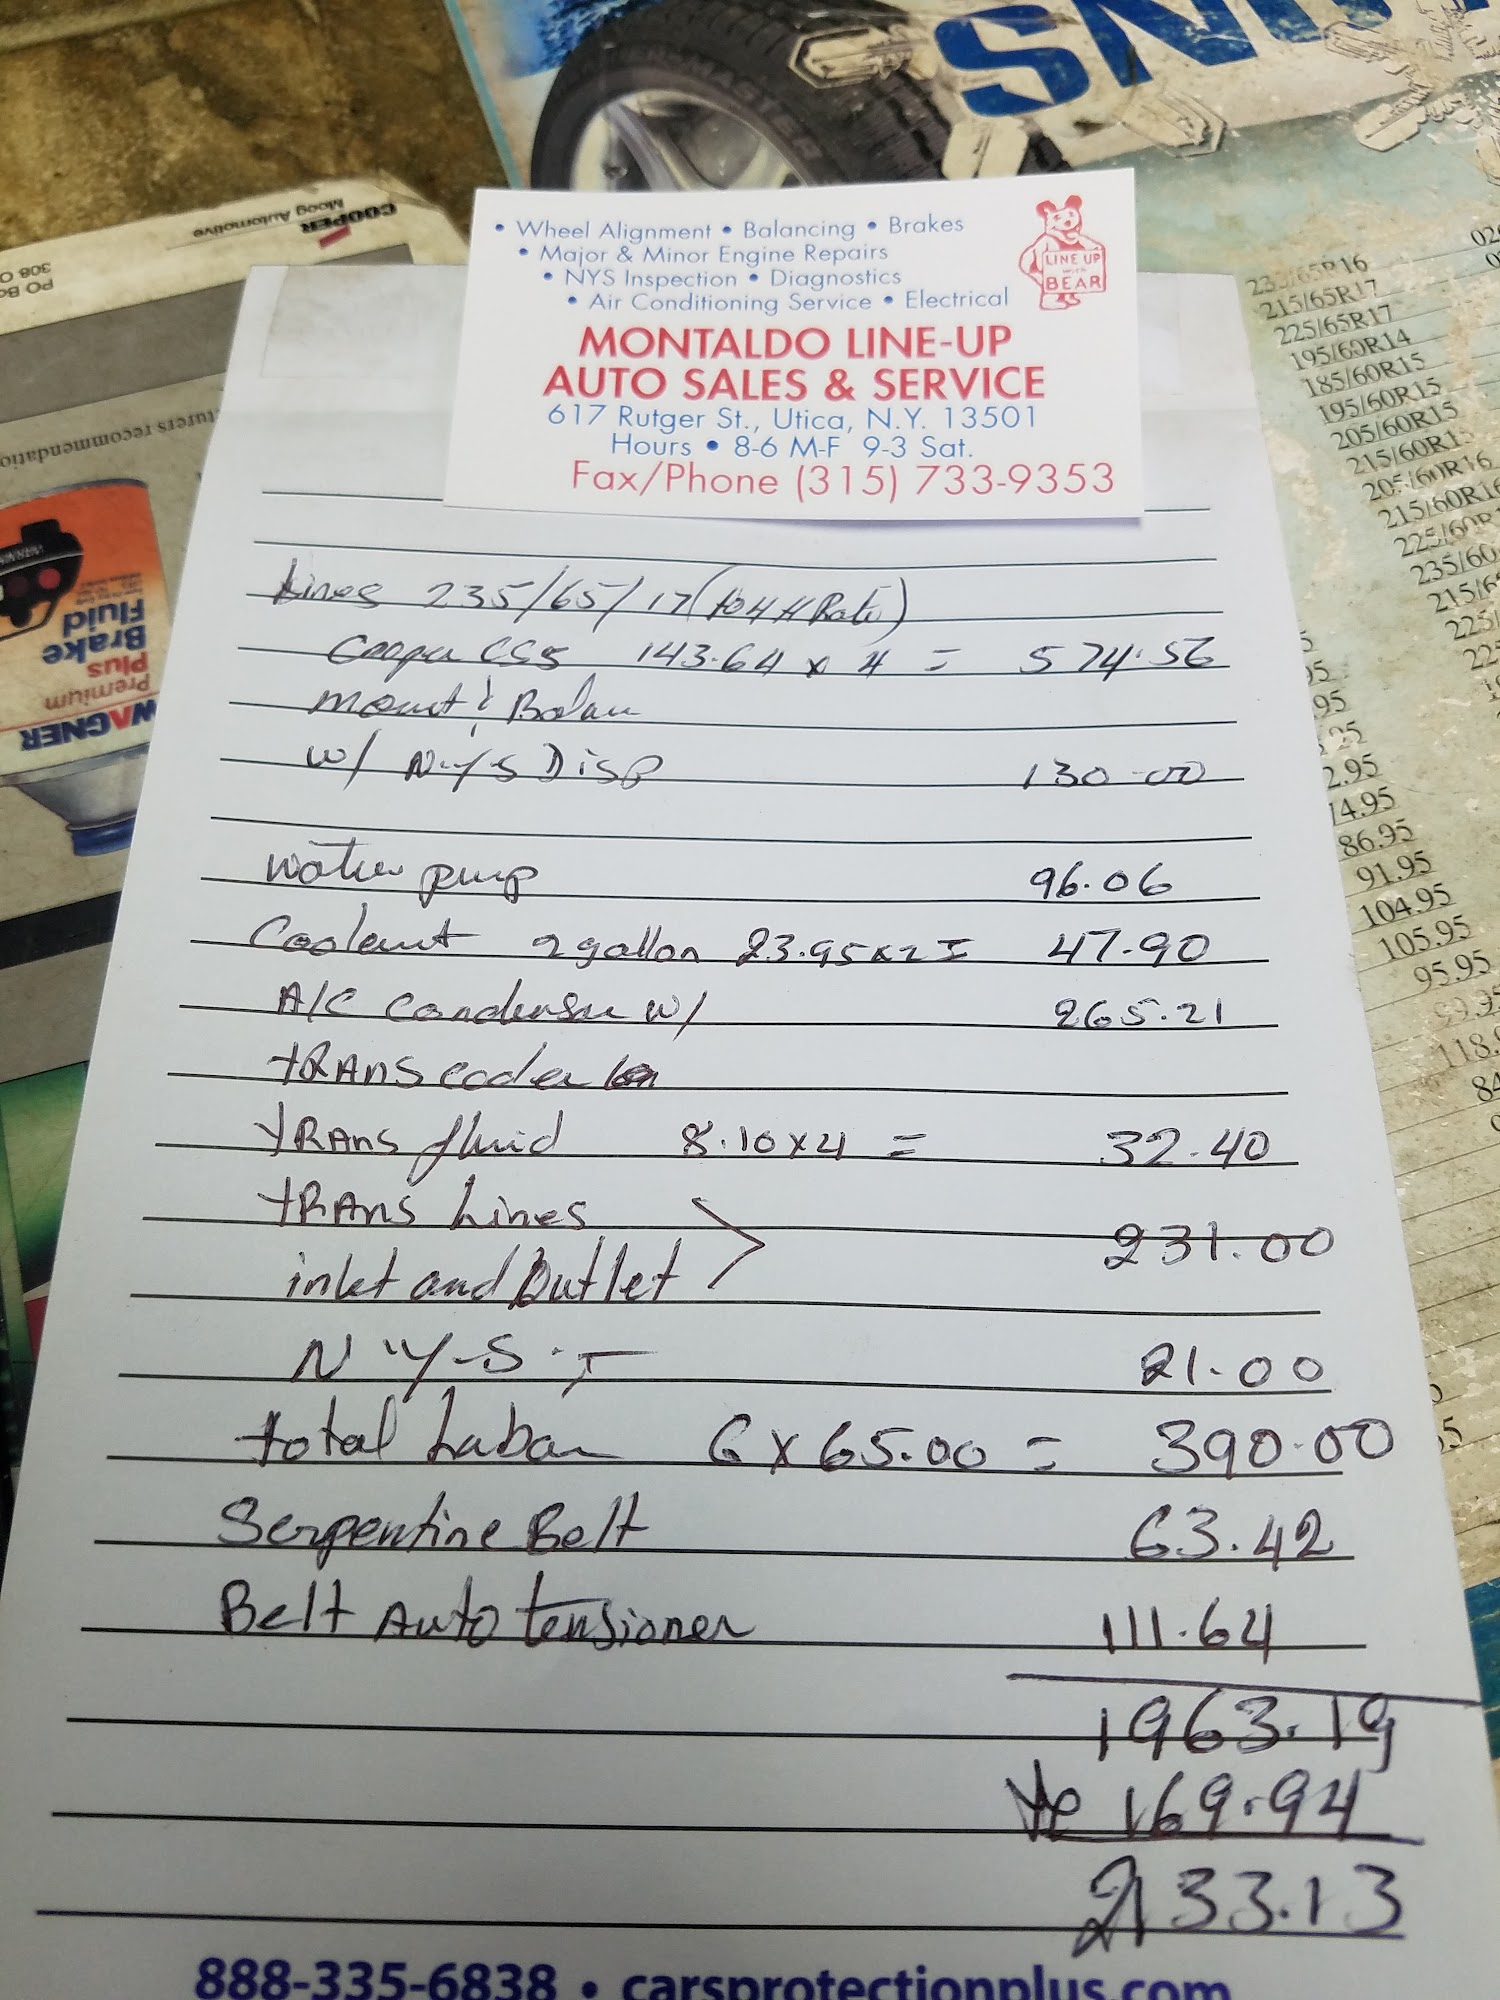 SNO
MASTER
COOPER
Moog Automotive
308 O
PO Bo
• Wheel Alignment • Balancing • Brakes
• Major & Minor Engine Repairs
• NYS Inspection • Diagnostics
• Air Conditioning Service • Electrical
LINE UP
with
BEAR
MONTALDO LINE-UP
AUTO SALES & SERVICE
617 Rutger St., Utica, N.Y. 13501
Hours • 8-6 M-F 9-3 Sat.
Fax/Phone (315) 733-9353
235/65/17 (104 H Rate)
Cooper CS5 143.64 x 4 = 574.56
Mount & Balan
w/ N.Y.S Disp 130.00
water pump 96.06
Coolant 2 gallon 23.95 x 2 = 47.90
A/C Condenser w/ 265.21
tRANS cooler
tRANS fluid 8.10 x 4 = 32.40
tRANS Lines
inlet and Outlet > 231.00
N.Y.S.I 21.00
total Labor 6 x 65.00 = 390.00
Serpentine Belt 63.42
Belt Auto tensioner 111.64
1963.19
169.94
2133.13
888-335-6838 • carsprotectionplus.com
turers recommendation
WAGNER
Premium
Plus
Brake
Fluid
235/65R16
215/65R17
225/65R17
195/60R14
185/60R15
195/60R15
205/60R15
215/60R15
205/60R16
215/60R16
225/60R
235/60
215/5
225/
225
95
95
2.95
74.95
86.95
91.95
104.95
105.95
95.95
99.95
118.9
84